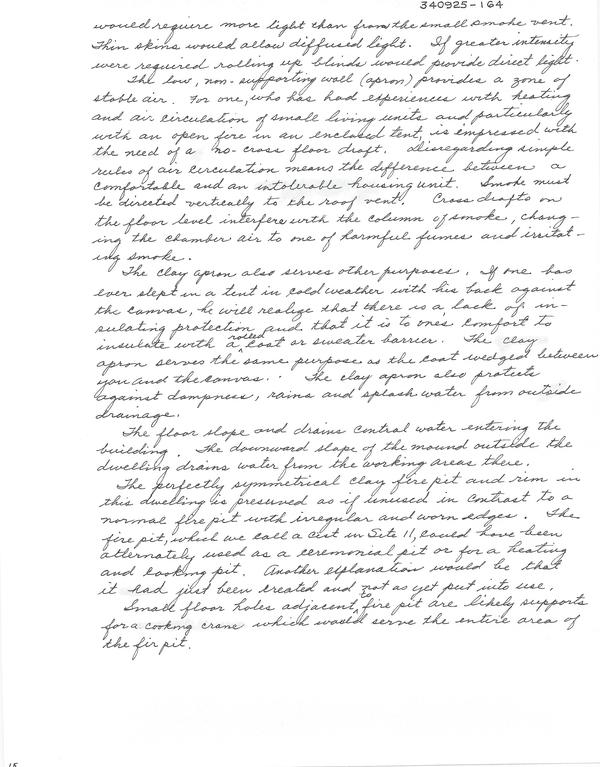 340925-164
would require more light than from the small smoke vent.
Thin skins would allow diffused light. If greater intensity
were required rolling up blinds would provide direct light.
The low, non-supporting wall (apron) provides a zone of
stable air. For one, who has had experiences with heating
and air circulation of small living units and particularly
with an open fire in an enclosed tent, is empressed with
the need of a no-cross floor draft. Disregarding simple
rules of air circulation means the difference between a
comfortable and an intolerable housing unit. Smoke must
be directed vertically to the roof vent. Cross drafts on
the floor level interfere with the column of smoke, chang-
ing the chamber air to one of harmful fumes and irritat-
ing smoke.
The clay apron also serves other purposes. If one has
ever slept in a tent in cold weather with his back against
the canvas, he will realize that there is a lack of in-
sulating protection and that it is to ones comfort to
insulate with a rolled coat or sweater barrier. The clay
apron serves the same purpose as the coat wedged between
you and the canvas. The clay apron also protects
against dampness, rains and splash water from outside
drainage.
The floor slope and drains control water entering the
building. The downward slope of the mound outside the
dwelling drains water from the working areas there.
The perfectly symmetrical clay fire pit and rim in
this dwelling is preserved as if unused in contrast to a
normal fire pit with irregular and worn edges. The
fire pit, which we call a cist in Site 11, could have been
alternately used as a ceremonial pit or for a heating
and cooking pit. Another explanation would be that
it had just been created and not as yet put into use.
Small floor holes adjacent to fire pit are likely supports
for a cooking crane which would serve the entire area of
the fir pit.
15